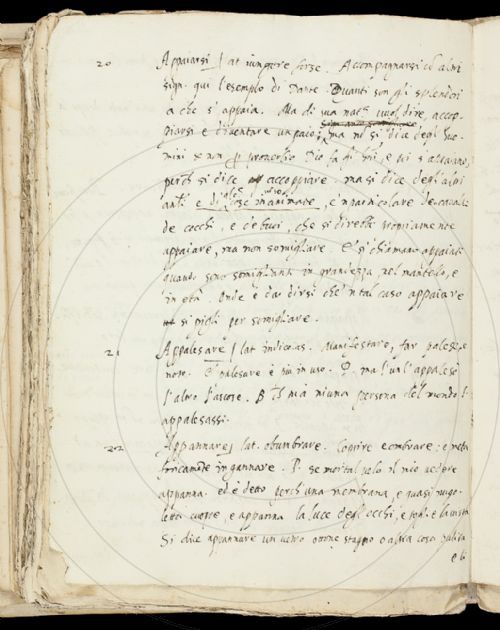 20 Appaiarsi | lat iungere forse. Accompagnarsi cō altri
sign. qui l'esempio di Dante. Quanti son gli splendori
a che s'appaia. Ma di sua nat.ᵃ vuol dire, accop-
piarsi e diventare un paio; ma nō si dice degli huo-
mini se non p proverbio Dio fa gli hūi, e poi s'accoppiano,
perch si dice accoppiare. ma si dice degli alri
anti e di cose inanimate, e 'n particolare de cavalli
de cocchi, e de buoi, che si direbbe propriamente
appaiare, ma non somigliare. E si chiamano appaiati
quando sono somiglianti in grandezza, nel mantello, e
in età. Onde è da dirsi che 'n tal caso appaiare
si pigli per somigliare.
21 Appalesare | lat. indicas. Manifestare, far palese, e
noto. E palesare è più in uso. P. ma l'un l'appalesò
l'altro l'ascose. B mai niuna persona del mondo l'
appalesassi.
22 Appannare | lat. obumbrare. Coprire e ombrare: e meta
foricamēte ingannare. P. se mortal velo il mio vedere
appanna. ed è detto perch una membrana, e quasi nugo-
letta cuopre, e appanna la luce degli occhi, e toglie la vista
Si dice appannare un vetro ottone stagno o altra cosa pulita
e li